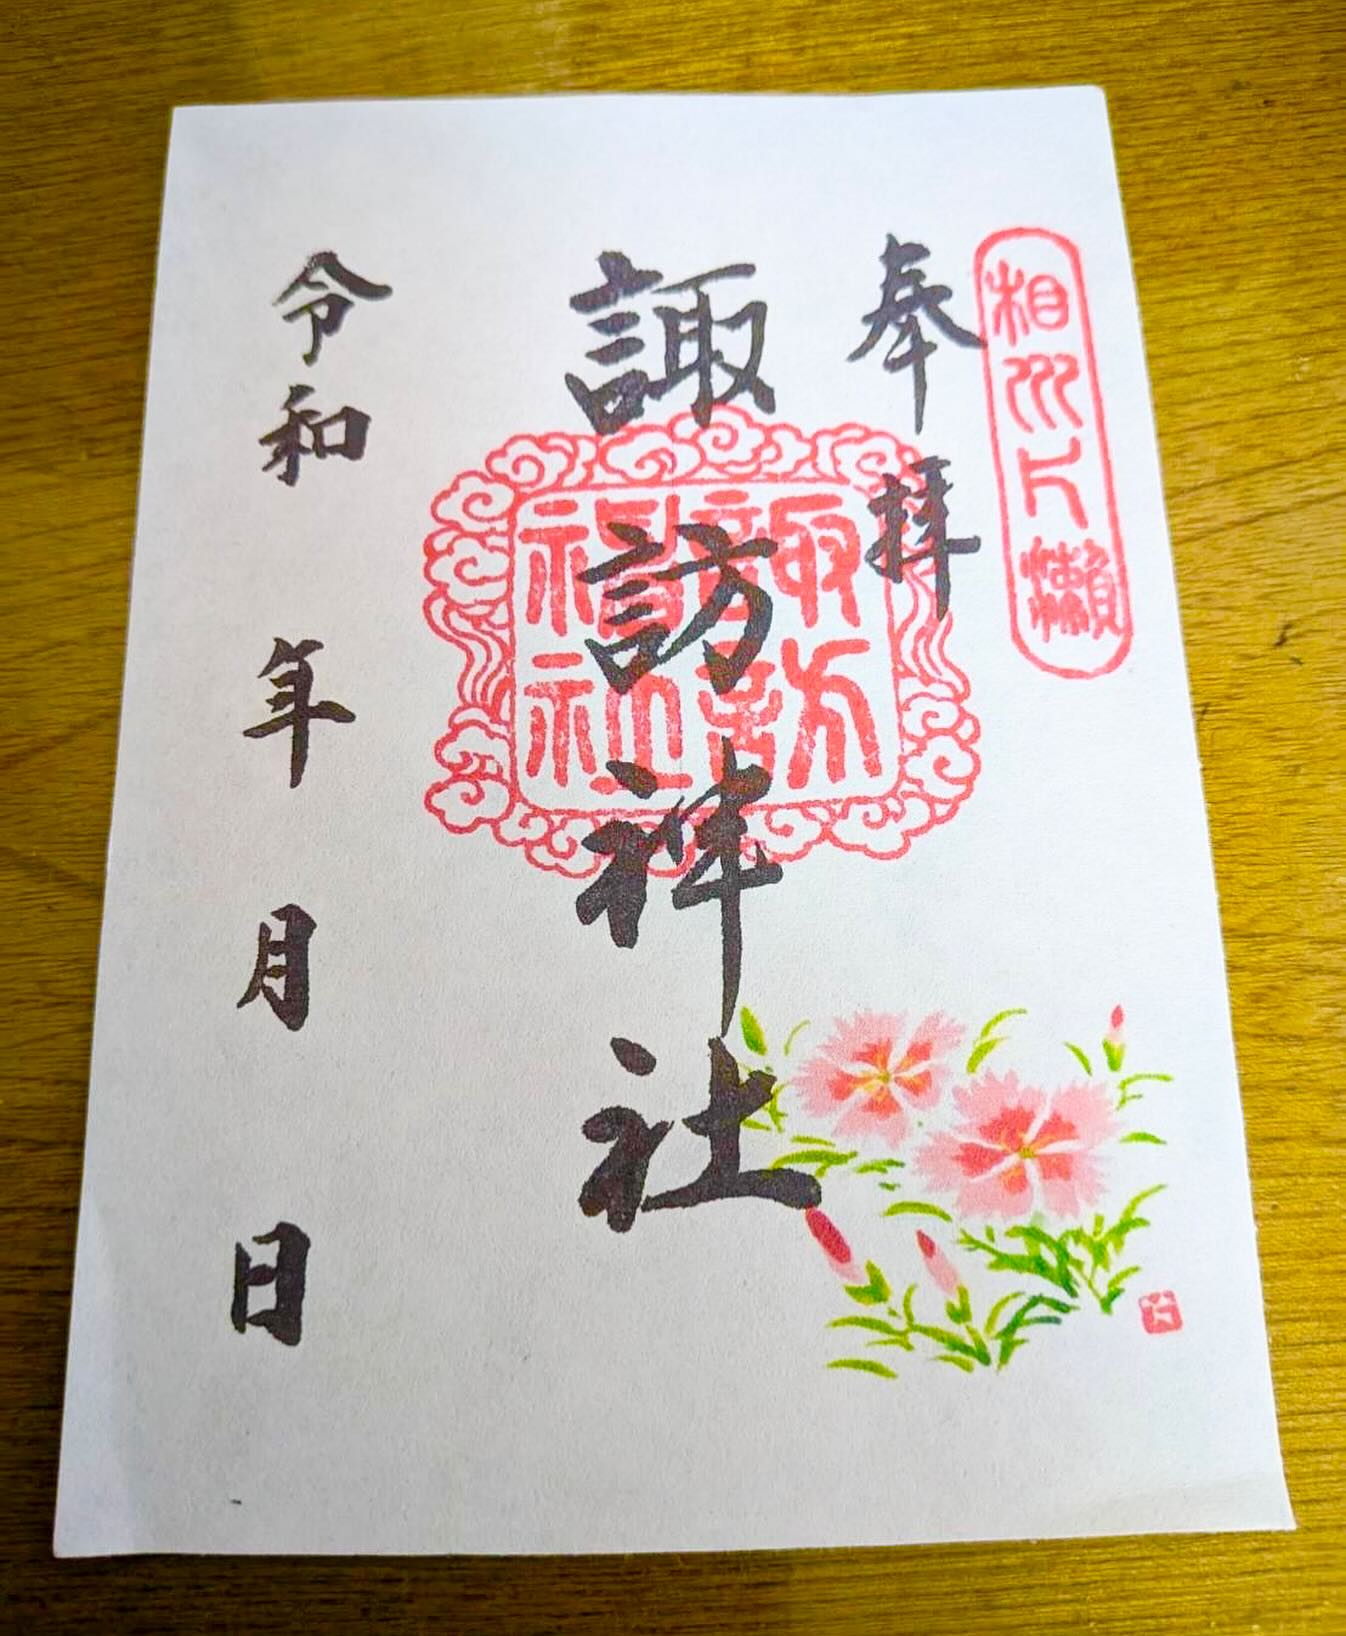 相州片瀨
奉拝
諏訪神社
諏訪
社
令和 年 月 日